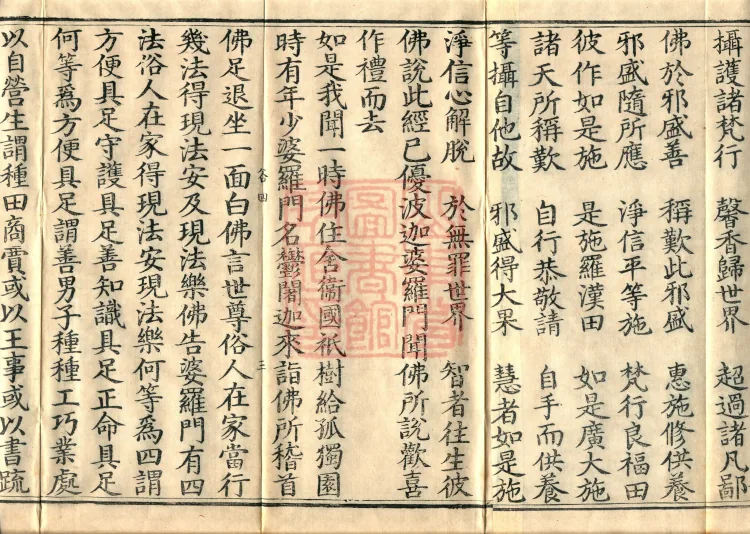 攝護諸梵行　馨香歸世界　超過諸凡鄙
佛於邪盛善　稱歎此邪盛　惠施修供養
邪盛隨所應　淨信平等施　梵行良福田
彼作如是施　是施羅漢田　如是廣大施
諸天所稱歎　自行恭敬請　自手而供養
等攝自他故　邪盛得大果　慧者如是施
淨信心解脫　於無罪世界　智者往生彼
佛說此經已優波迦婆羅門聞佛所說歡喜
作禮而去
如是我聞一時佛住舍衞國祇樹給孤獨園
時有年少婆羅門名鬱闍迦來詣佛所稽首
佛足退坐一面白佛言世尊俗人在家當行
幾法得現法安及現法樂佛告婆羅門有四
法俗人在家得現法安現法樂何等為四謂
方便具足守護具足善知識具足正命具足
何等為方便具足謂善男子種種工巧業處
以自營生謂種田商賈或以王事或以書疏